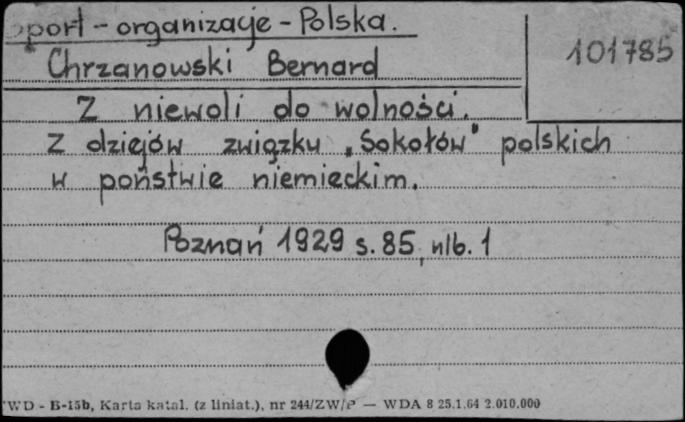 Sport - organizacje - Polska.
101785
Chrzanowski Bernard
Z niewoli do wolności.
Z dziejów związku „Sokołów" polskich
w państwie niemieckim.
Poznań 1929 s. 85, nlb. 1
WD - B-15b, Karta katal. (z liniat.), nr 244/ZW/P — WDA 8 25.1.64 2.010.000